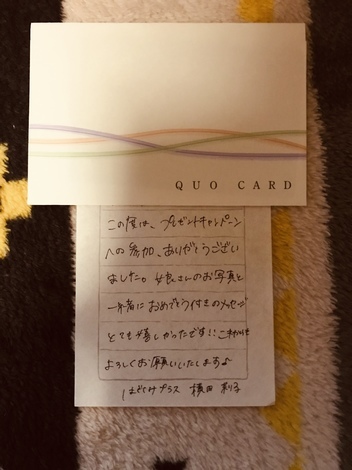 QUO CARD
この度は、プレゼントキャンペーン
への参加、ありがとうござい
ました。娘さんのお写真と
一緒におめでとう付きのメッセージ
とても嬉しかったです!!これからも
よろしくお願いいたします♪
はどてみプラス 横田